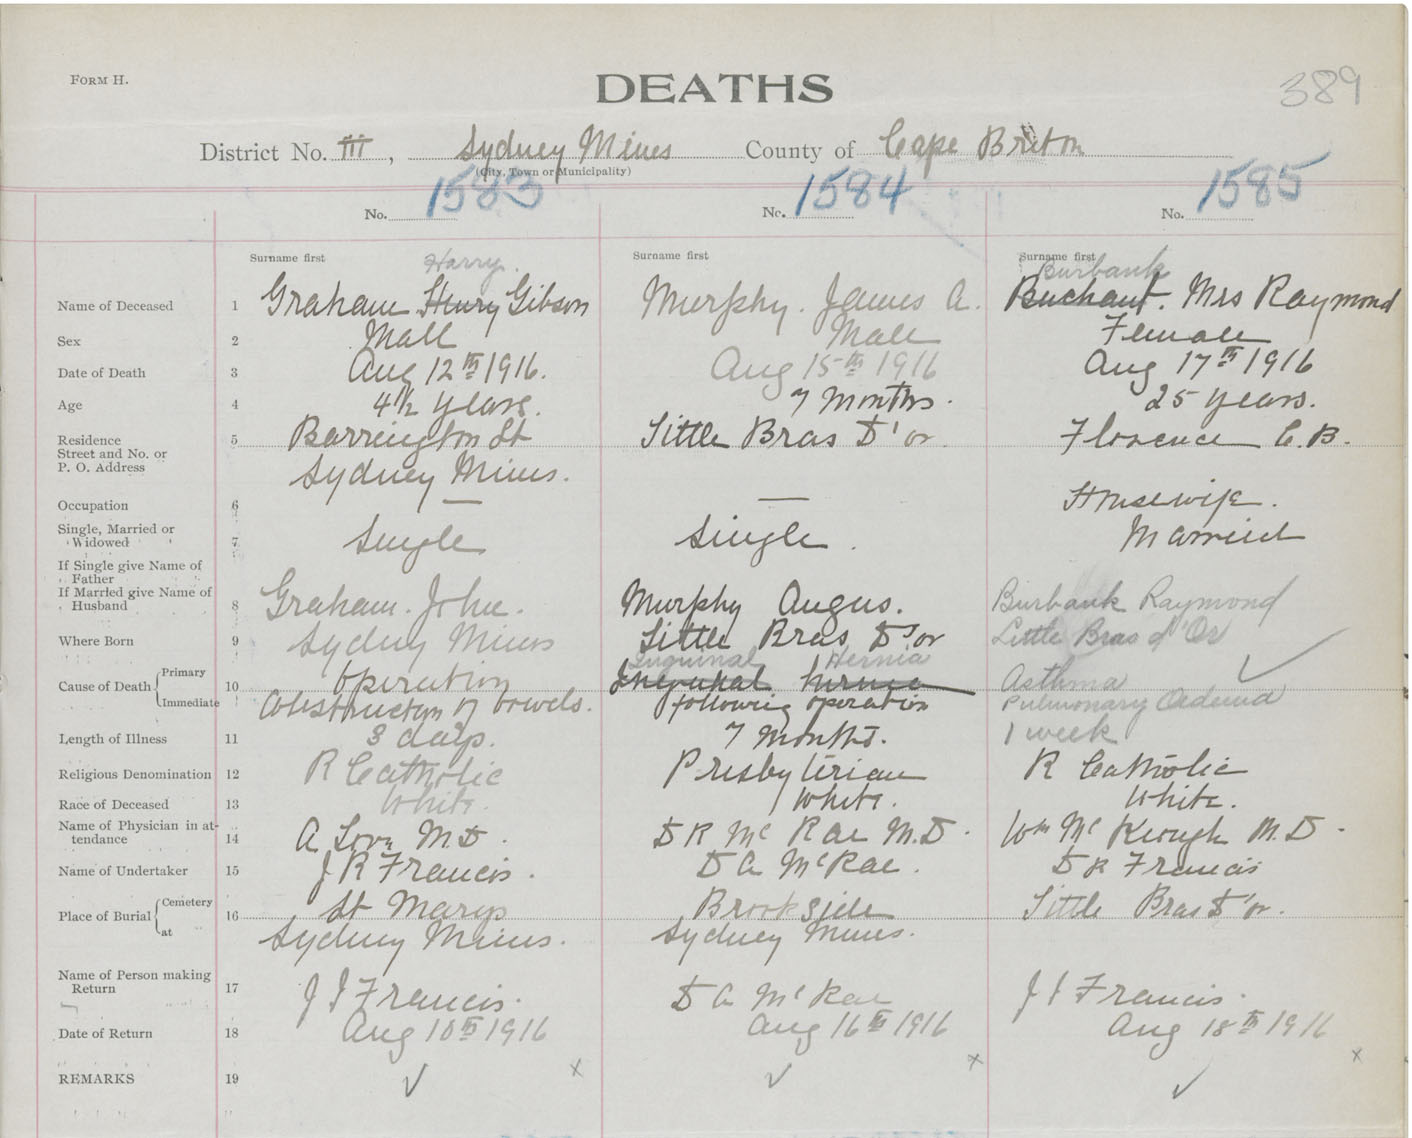 FORM H.
DEATHS
389
District No. III, Sydney Mines County of Cape Breton
(City, Town or Municipality)
No. 1583 No. 1584 No. 1585
Surname first Surname first Surname first
Harry Burbank
Name of Deceased 1 Graham Henry Gibson Murphy. James A. Buchant. Mrs Raymond
Sex 2 Male Male Female
Date of Death 3 Aug 12th 1916. Aug 15th 1916 Aug 17th 1916
Age 4 4½ years. 7 months. 25 years.
Residence 5 Barrington St Little Bras D'or Florence C.B.
Street and No. or
P. O. Address Sydney Mines.
Occupation 6 — — Housewife.
Single, Married or
Widowed 7 Single Single. Married
If Single give Name of
Father
If Married give Name of
Husband 8 Graham. John. Murphy Angus. Burbank Raymond
Where Born 9 Sydney Mines Little Bras D'or Little Bras d'Or
Inguinal Hernia
Cause of Death { Primary 10 Operation hernia Asthma
Immediate Obstruction of bowels. following operation Pulmonary Oedema
Length of Illness 11 3 days. 7 months. 1 week
Religious Denomination 12 R Catholic Presbyterian R Catholic
Race of Deceased 13 White. White. White.
Name of Physician in at-
tendance 14 A Love M.D. D R McRae M.D. Wm McKeough M.D.
Name of Undertaker 15 J R Francis. D A McRae. Francis
Place of Burial { Cemetery 16 St Marys Brookside Little Bras D'or.
at Sydney Mines. Sydney Mines.
Name of Person making
Return 17 J J Francis. D A McRae J J Francis.
Date of Return 18 Aug 10th 1916 Aug 16th 1916 Aug 18th 1916
x x x
REMARKS 19 ✓ ✓ ✓